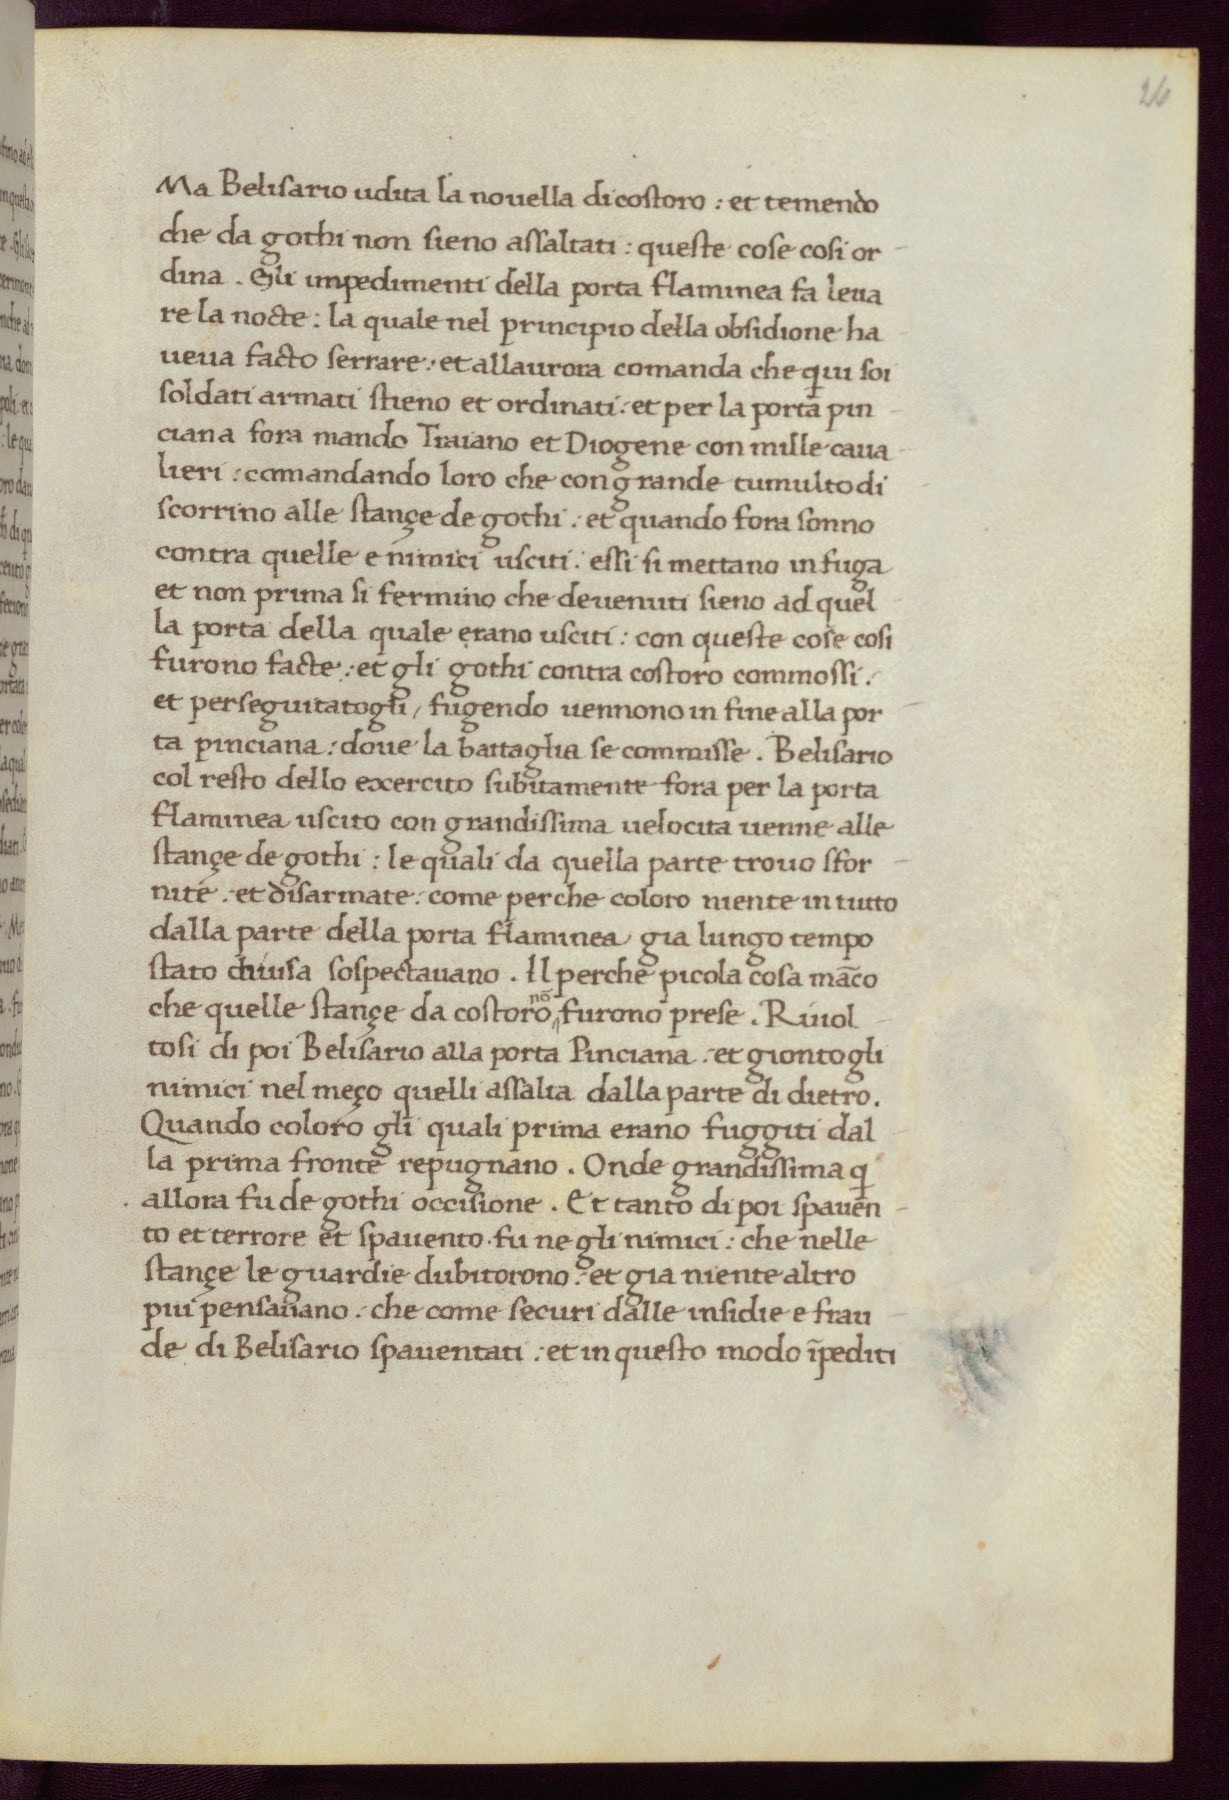 26
Ma Belisario udita la novella di costoro : et temendo
che da gothi non sieno assaltati : queste cose cosi or
dina . Gli impedimenti della porta flaminea fa leua
re la nocte : la quale nel principio della obsidione ha
ueua facto serrare : et allaurora comanda che q̄ui soi
soldati armati stieno et ordinati : et per la porta pin
ciana fora mando Traiano et Diogene con mille caua
lieri : comandando loro che con grande tumulto di
scorrino alle stançe de gothi : et quando fora sonno
contra quelle e nimici usciti : essi si mettano in fuga
et non prima si fermino che deuenuti sieno ad quel
la porta della quale erano usciti : con queste cose cosi
furono facte : et gli gothi contra costoro commossi .
et perseguitatogli / fugendo uennono in fine alla por
ta pinciana : doue la battaglia se commisse . Belisario
col resto dello exercito subitamente fora per la porta
flaminea uscito con grandissima uelocita uenne alle
stançe de gothi : le quali da quella parte trouo sfor
nite : et disarmate : come perche coloro niente in tutto
dalla parte della porta flaminea gia lungo tempo
stato chiusa sospectauano . Il perche picola cosa māco
che quelle stançe da costoro nō furono prese . Riuol
tosi di poi Belisario alla porta Pinciana : et gionto gli
nimici nel meço quelli assalta dalla parte di dietro .
Quando coloro gli quali prima erano fuggiti dal
la prima fronte repugnano . Onde grandissima q̄
allora fu de gothi occisione . Et tanto di poi spauen
to et terrore et spauento fu ne gli nimici : che nelle
stançe le guardie dubitorono : et gia niente altro
piu pensauano : che come securi dalle insidie e frau
de di Belisario spauentati : et in questo modo īpediti